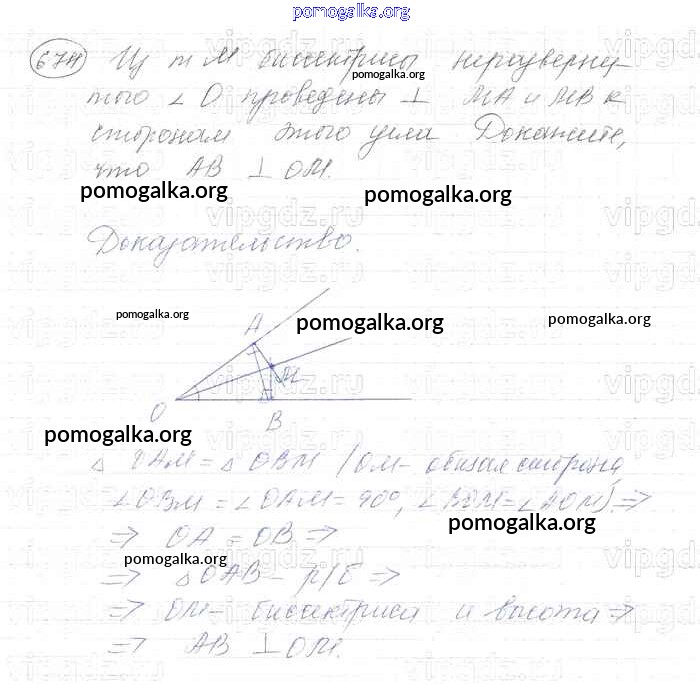 pomogalka.org
674 Из т М биссектрисы неразверну-
pomogalka.org
того ∠ O проведены ⊥ MA и MB к
сторонам этого угла. Докажите,
что AB ⊥ OM.
pomogalka.org pomogalka.org
Доказательство.
pomogalka.org pomogalka.org pomogalka.org
A
M
O
B
pomogalka.org
△ OAM = △ OBM (OM - общая сторона,
∠OBM = ∠OAM = 90°, ∠BOM = ∠AOM) ⇒
pomogalka.org
⇒ OA = OB ⇒
pomogalka.org
⇒ △OAB - р/б ⇒
⇒ OM - биссектриса и высота ⇒
⇒ AB ⊥ OM.
vipgdz.ru